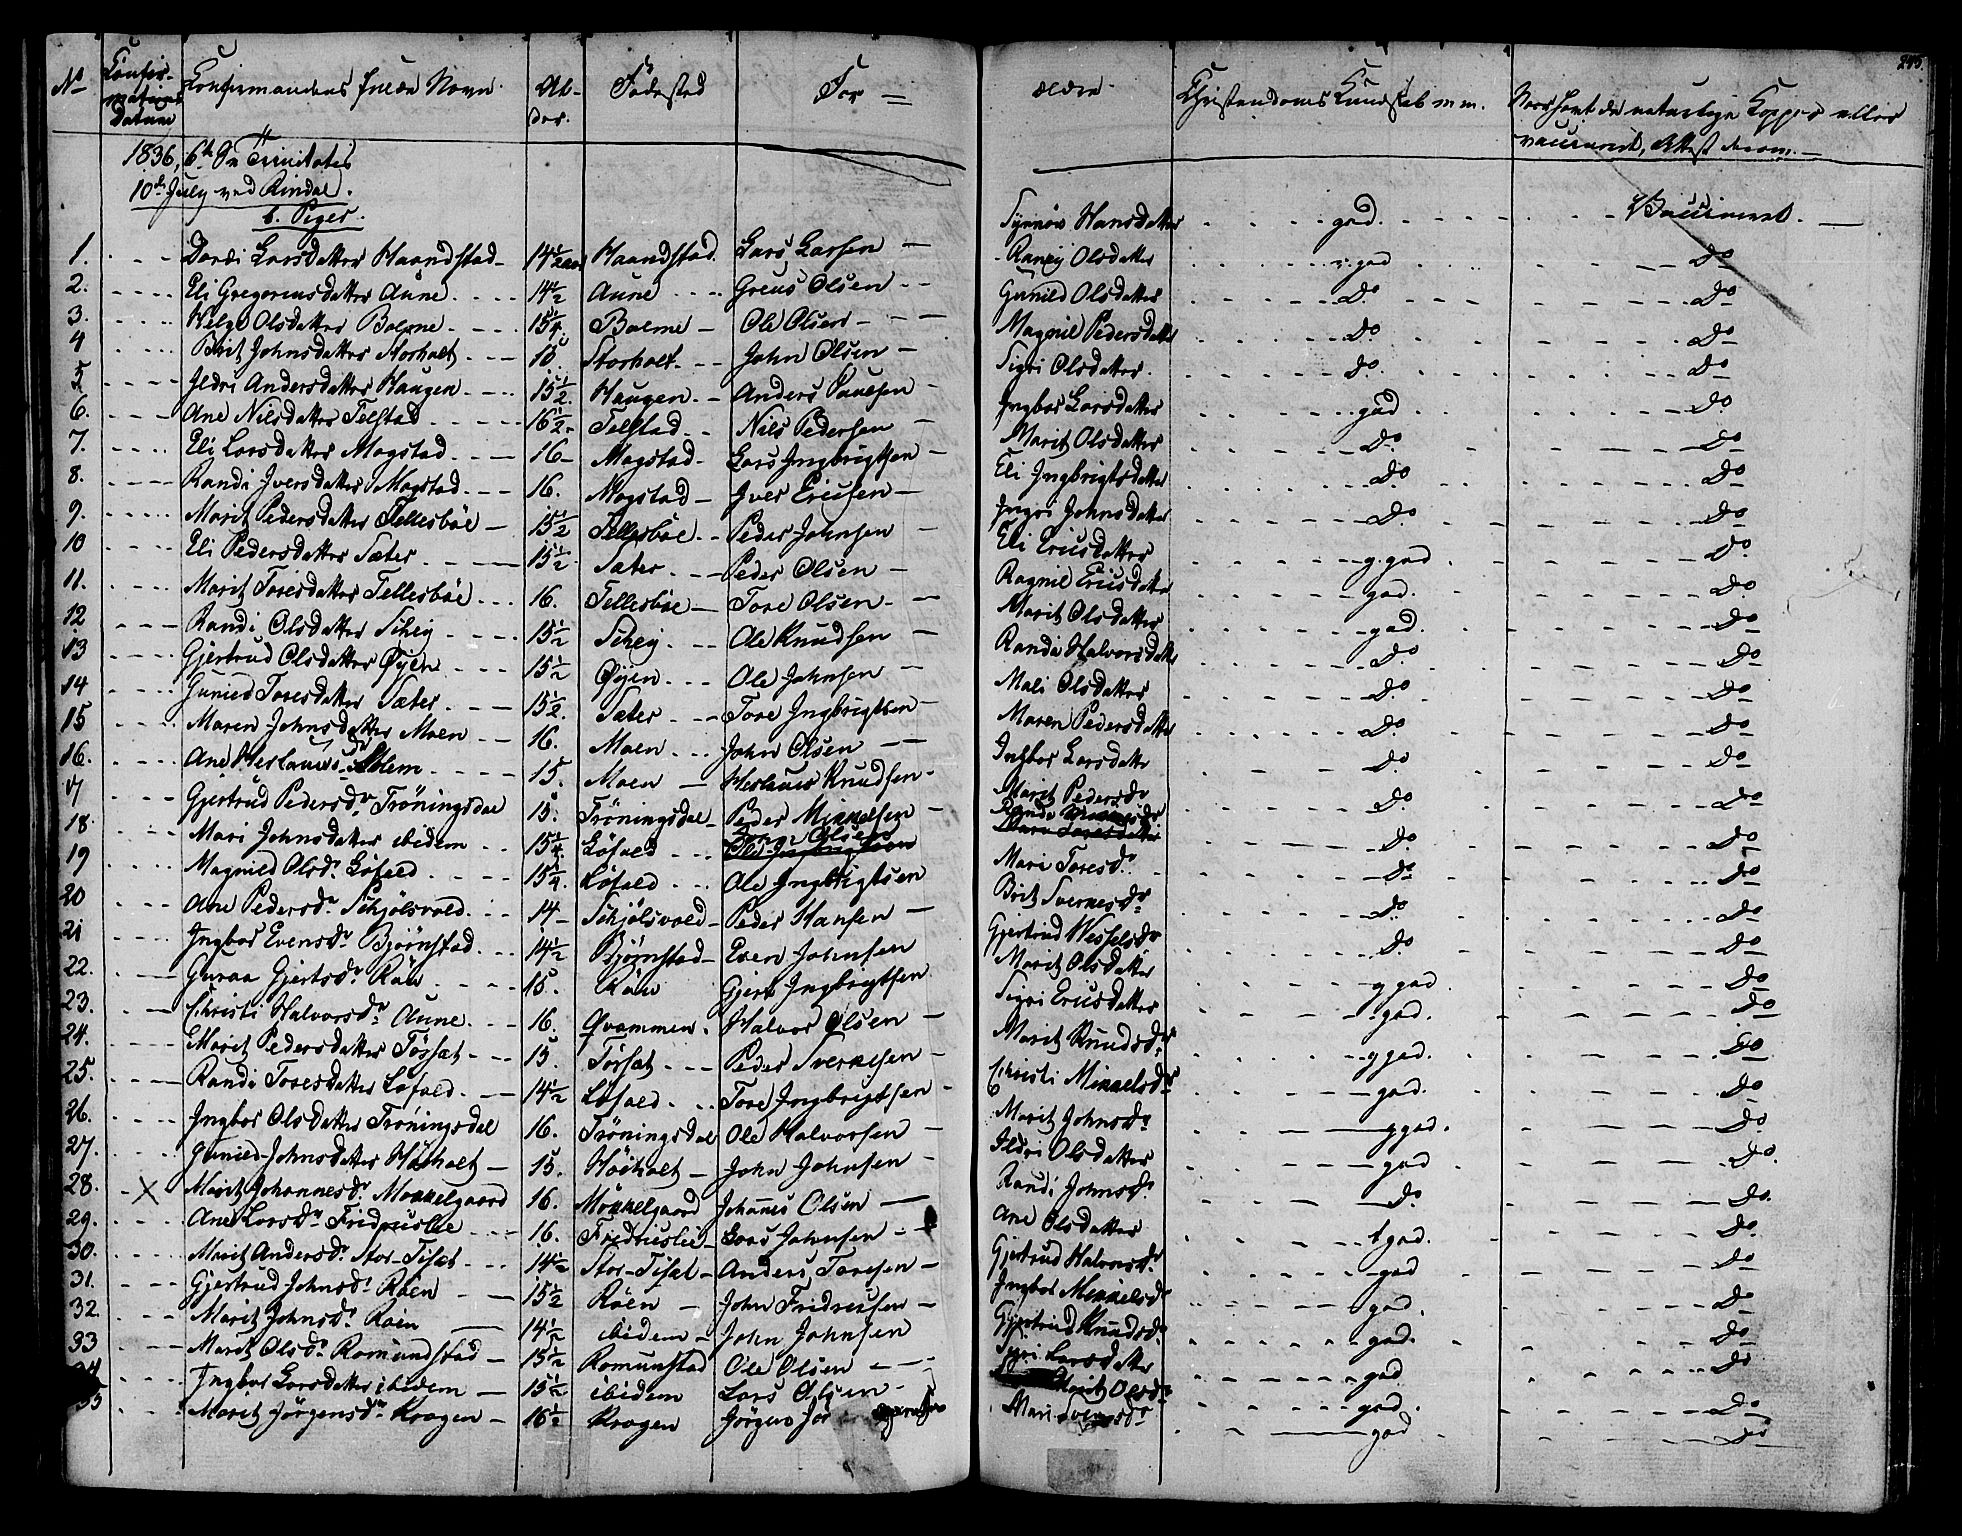 245.
No Confir-mations Datum Confirmandens fulde Navn. Al-der. Fødested For = ældre Christendoms Kundskab m.m. Naar havt de naturlige Kopper eller vaccineret, Attest derom.
1836, 6te Sn Trinitatis
10de July ved Rindal.
b. Piger.
1. Dordi Larsdatter Haandstad 14½ aar Haandstad Lars Larsen Synnøv Hansdatter god. Vaccineret.
2. Eli Gregoriusdatter Aune 14½ Aune Greus Olsen Randj Olsdatter god Do
3. Helge Olsdatter Bolme 15¼ Bolme Ole Olsen Gunild Olsdatter Do Do
4 Brit Johnsdatter Storholt 15 Storholt John Olsen Magnil Pedersdatter Do Do
5 Ildri Andersdatter Haugen 15½ Haugen Anders Paulsen Sigri Olsdatter Do Do
6. Ane Nilsdatter Telstad 16½ Telstad Nils Pedersen Ingbor Larsdatter god Do
7. Eli Larsdatter Mogstad 16 Mogstad Lars Ingbrigtsen Marit Olsdatter Do Do
8. Randi Iversdatter Mogstad 16. Mogstad Iver Ericsen Eli Ingbrigtsdatter Do Do
9. Marit Pedersdatter Tellesböe 15½ Tellesböe Peder Johnsen Ingri Johnsdatter Do Do
10 Eli Pedersdatter Sæter 15½ Sæter Peder Olsen Eli Ericsdatter g. god Do
11. Marit Toresdatter Tellesböe 16. Tellesböe Tore Olsen Ragnil Ericsdatter god. Do
12 Randi Olsdatter Schey 15½ Schey Ole Knudsen Marit Olsdatter god. Do
13 Gjertrud Olsdatter Øyen 15½ Øyen Ole Johnsen Randi Halvorsdatter Do Do
14 Gunild Toresdatter Sæter 15½ Sæter Tore Ingbrigtsen Mali Olsdatter Do Do
15 Maren Johnsdatter Moen 16. Moen John Olsen Maren Pedersdatter Do Do
16. Ane Herlaugsdr Solem 15. Moen Herlaus Knudsen Ingbor Larsdatter Do Do
17 Gjertrud Pedersdr Tröningsdal 15. Tröningsdal Peder Mikkelsen Marit Pedersdr Do Do
18. Mari Johnsdatter ibidem 15¼ Löfald John Olsen Do Do
19 Magnild Olsdr Löfald 15¼ Löfald Ole Ingbrigtsen Mari Toresdr Do Do
20 Ane Pedersdr Schjölsvold 14 Schjölsvold Peder Hansen Brit Sverkesdr Do Do
21 Ingbor Evensdr Bjørnstad 14½ Bjørnstad Even Johnsen Gjertrud Wesselsdr Do Do
22. Guroa Gjertsdr Röen 15. Röen Gjert Ingbrigtsen Marit Olsdatter g god Do
23. Christi Halvorsdr Aune 16. Qvammen Halvor Olsen Sigri Ericsdatter god. Do
24. Marit Pedersdatter Tössæt 15 Tössæt Peder Sverkesen Marit Knudsdr g god. Do
25. Randi Toresdatter Løfald 14½ Løfald Tore Ingbrigtsen Christi Mikkelsdr god. Do
26. Ingbor Olsdatter Tröningsdal 16. Tröningsdal Ole Halvorsen Marit Johnsdr ggod. Do
27. Gunild Johnsdatter Höiholt 15. Höiholt John Johnsen Ildri Olsdatter god Do.
28. X Marit Johannesdr Mokkelgaard 16. Mökkelgaard Johannes Olsen Randi Johnsdr Do Do.
29. Ane Larsdr Fridriuslie 16. Fridriuslie Lars Johnsen Ane Olsdatter t god. Do
30. Marit Andersdr Stor-Tiset 14½ Stor-Tisæt Anders Toresen Gjertrud Halvorsdr god Do
31. Gjertrud Johnsdr Röen 15½ Röen John Fridriksen Ingbor Mikkelsdr god. Do
32. Marit Johnsdr Röen 14½ ibidem John Johnsen Gjertrud Knudsdr god. Do
33 Marit Olsdr Romundstad 15½ Romunstad Ole Olsen Sigri Larsdatter god Do
34 Ingbor Larsdatter ibidem 15½ ibidem Lars Olsen Marit Olsdr god. Do
35 Marit Jörgensdr Krogen 16½ Krogen Jörgen Mari Svensdr god Do